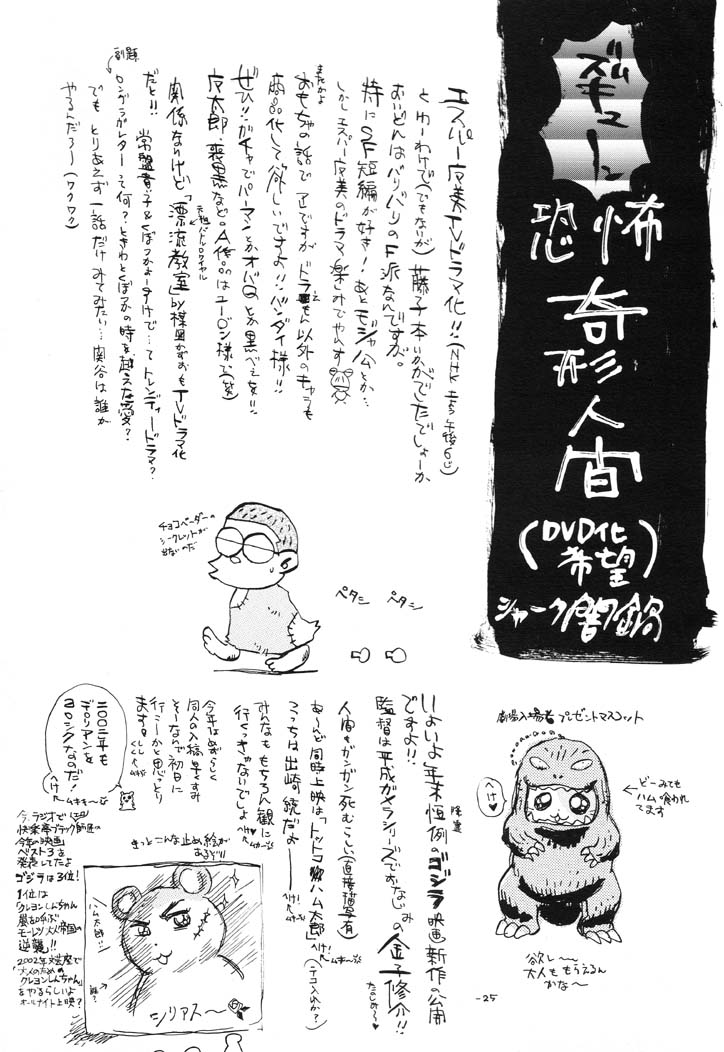 ズギューム
恐怖
奇形人間
(DVD化希望)
シャーク闇鍋
エスパー魔美TVドラマ化!!(NHK
とゆーわけで(でもないが)藤子本いかがでしたでしょーか
おいどんはバリバリのF派なんですが。
特にSF短編が好き!あとモジャ公とか…
しかしエスパー魔美のドラマ楽しみでやんす
またかよ
おもちゃの話で 正ですが ドラえもん以外のキャラも
商品化して欲しいですよ!!バンダイ様!!
ぜひ!!ガチャでパーマンとかオバQとか黒べえを!!
魔太郎、喪黒などのA作品はユージン様で(笑)
元祖バトルロワイヤル
関係ないけど「漂流教室」by楳図かずおもTVドラマ化
だと!! 常盤貴子&くぼづかようすけで…てトレンディードラマ?
副題
ロングラブレターって何?ときわとくぼづかの時を越えた愛?
でも とりあえず一話だけみてみたい… 関谷は誰が
やるんだろー(ワクワク)
チョコベーダーの
シークレットが
出ないのだ
ペタシ
ペタシ
劇場入場者プレゼントマスコット
へけ♡
←どーみても
ハム喰われ
てます
欲し〜
大人ももらえるん
かな〜
-25
いよいよ年末恒例のゴジラ映画新作の公開
ですよ!!
監督は平成ガメラシリーズでおなじみの金子修介!!
たのしみ〜♡
人間もガンガン死ぬらしい(直接描写有)
あーんど同時上映は「とっとこハム太郎」
(テコ入れか?)
こっちは出崎統だよーーー
みんなももちろん観に
行くっきゃないでしょ
へけ♡
今年はめずらしく
同人の入稿早くすみ
そーなんで初日に
行こーかと思っとり
ます。
二〇〇二年も
デロリアンを
ヨロシクなのだ!
へけ
きっとこんな止め絵が
あるぞ!!
ハム太郎…
誰?
シリアス〜
今、ラジオで
快楽亭ブラック師匠の
今年の映画
ベスト3を
発表してたよ
ゴジラは3位!
1位は
クレヨンしんちゃん
嵐を呼ぶ
モーレツ大人帝国の
逆襲!!
2002年文芸座で
「大人のための
クレヨンしんちゃん」
をやるらしいよ
オールナイト上映?